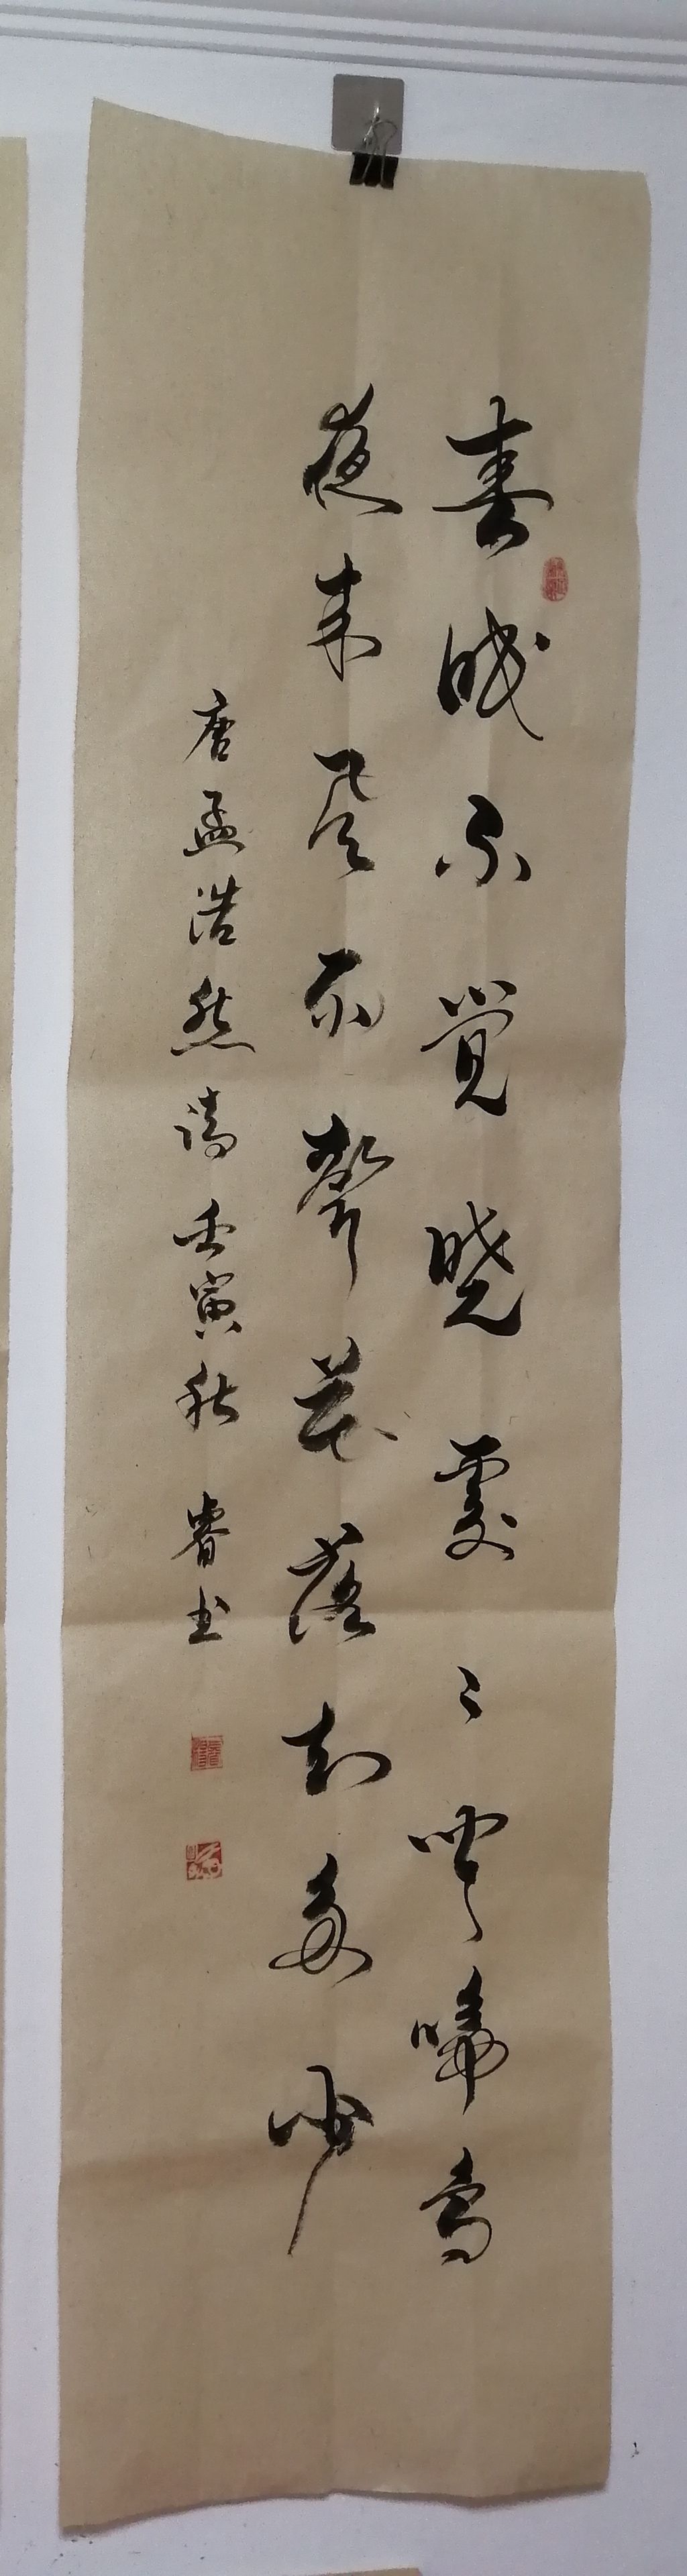 春眠不觉晓处〻闻啼鸟
夜来风雨声花落知多少
唐孟浩然诗壬寅秋睿书